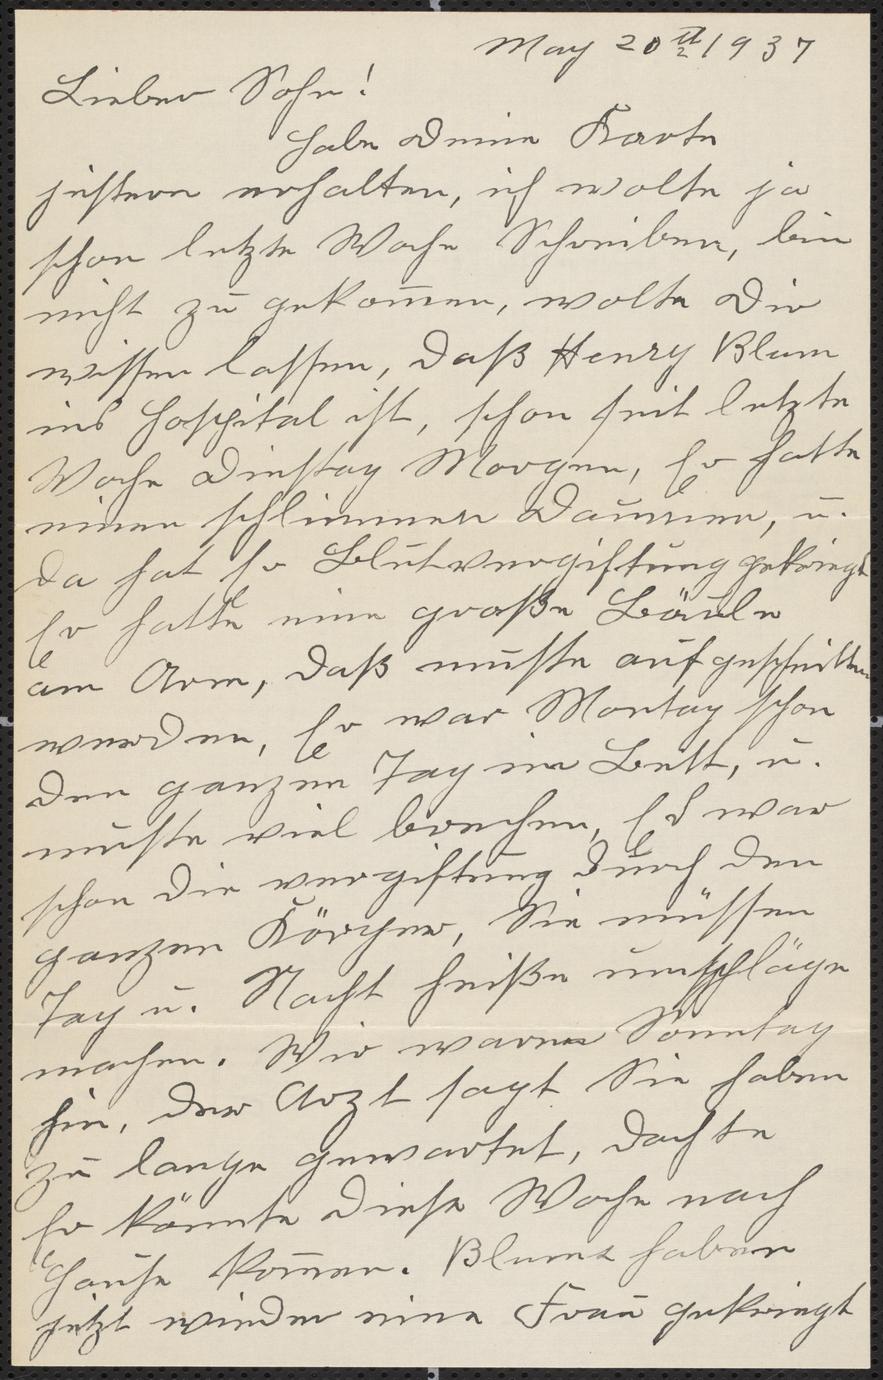 May 20th 1937
Lieber Sohn!
Habe Deine Karte
jestern erhalten, ich wolte ja
schon letzte Woche Schreiben, bin
nicht zu gekom̅en, wolte Dir
wissen lassen, daß Henry Blum
ins Hospital ist, schon seit letzte
Woche Dinstag Morgen, Er hatte
einen schlimmen Daumen, u.
da hat Er Blutvergiftung gekriegt
Er hatte eine große Bäule
am Arm, daß muste aufgeschnitten
werden, Er war Montag schon
den ganzen Tag im Bett, u.
muste viel brechen, Es war
schon die vergiftung durch den
ganzen Körper, Sie müssen
Tag u. Nacht heiße umschläge
machen. Wir waren Sonntag
hin, der Arzt sagt Sie haben
zu lange gewartet, dachte
Er könnte diese Woche nach
Hause kom̅en. Blums haben
jetzt wieder eine Frau gekriegt